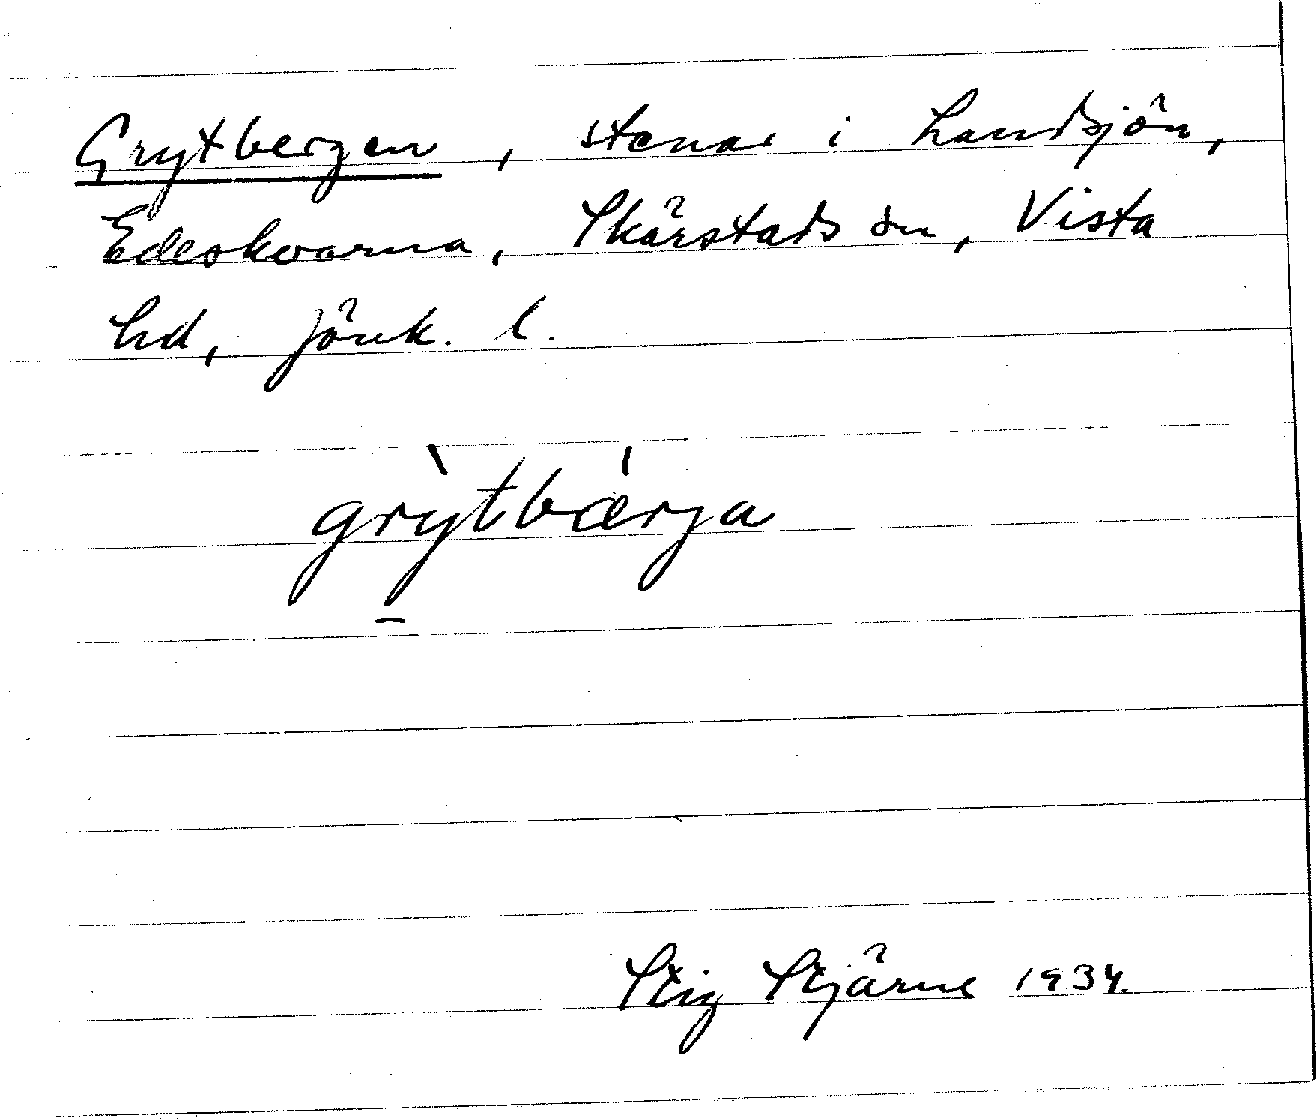 Grytbergen, stenar i Landsjön,
Edeskvarna, Skärstads sn, Vista
hd, Jönk. l.
grỳtbǽrja
Stig Stjärne 1934.